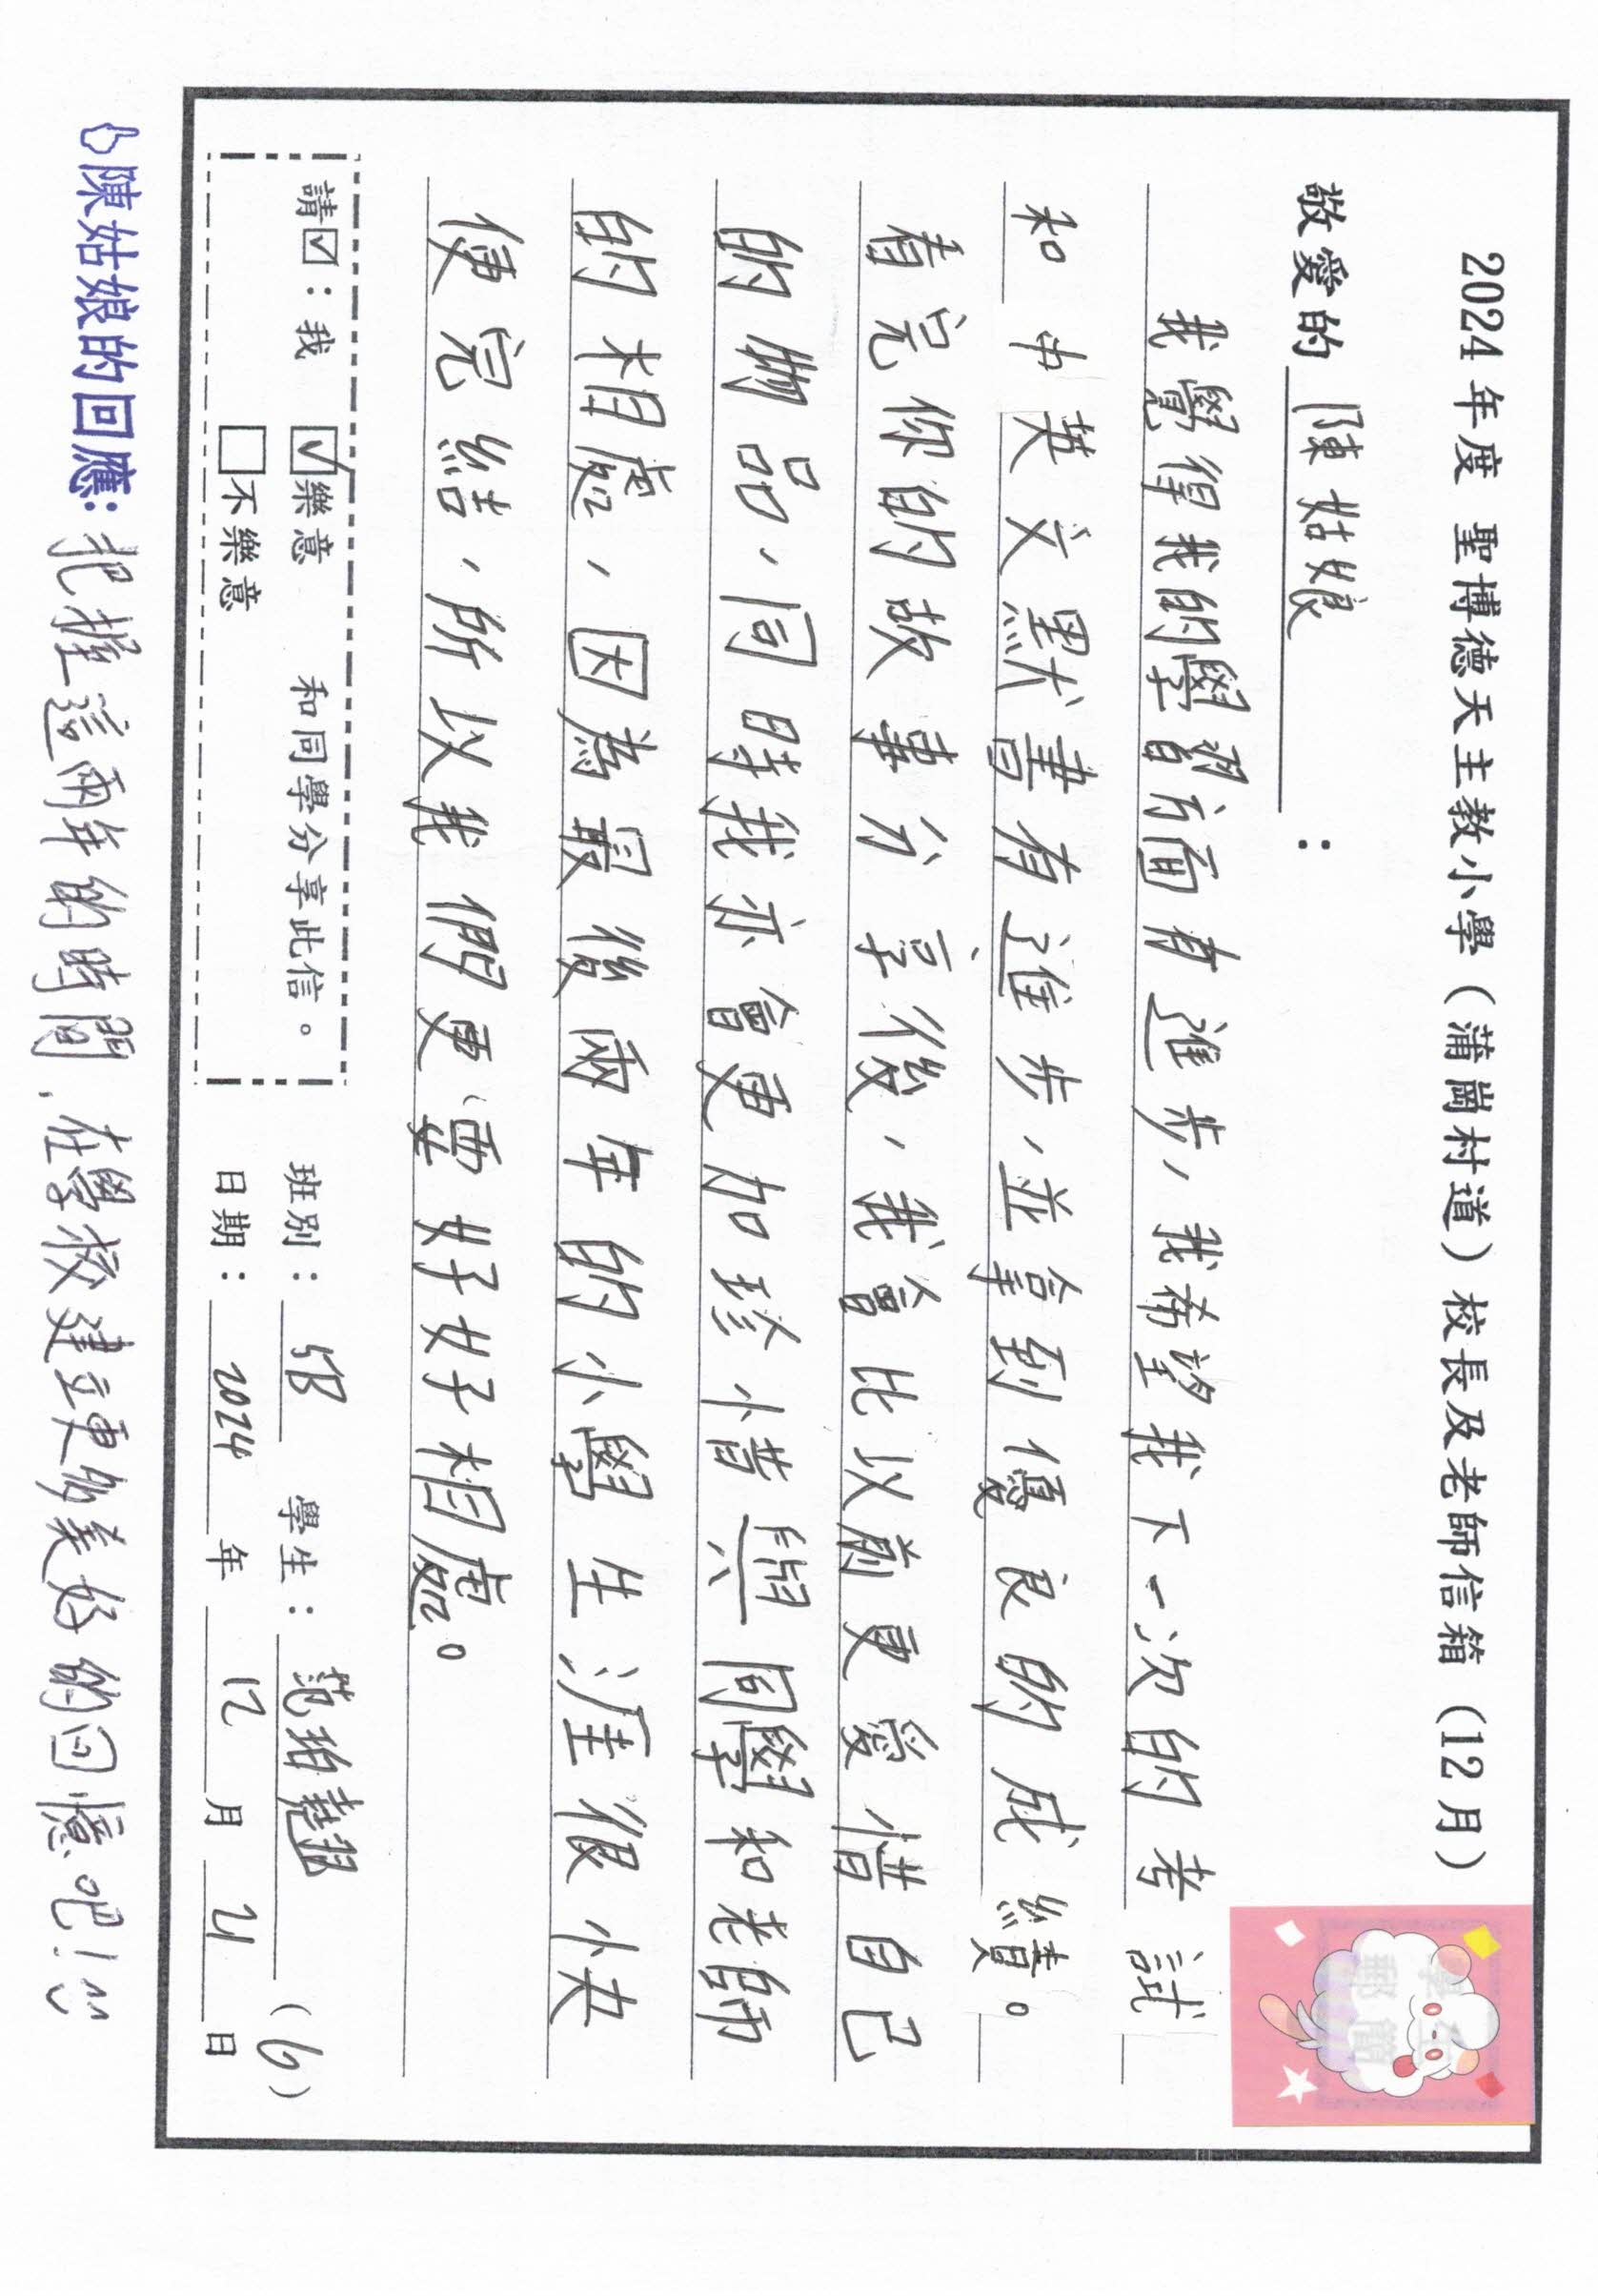 2024 年度 聖博德天主教小學（蒲崗村道）校長及老師信箱（12 月）
敬愛的 陳姑娘 ：
我覺得我的學習方面有進步，我希望我下一次的考試
和中英文默書有進步，並拿到優良的成績。
看完你的故事分享後，我會比以前更愛惜自己
的物品，同時我亦會更加珍惜與同學和老師
的相處，因為最後兩年的小學生涯很快
便完結，所以我們更要好好相處。
請☑：我 ☑樂意 和同學分享此信。
□不樂意
班別： 5B 學生： (6)
日期： 2024 年 12 月 21 日
陳姑娘的回應：把握這兩年的時間，在學校建立更多美好的回憶吧！